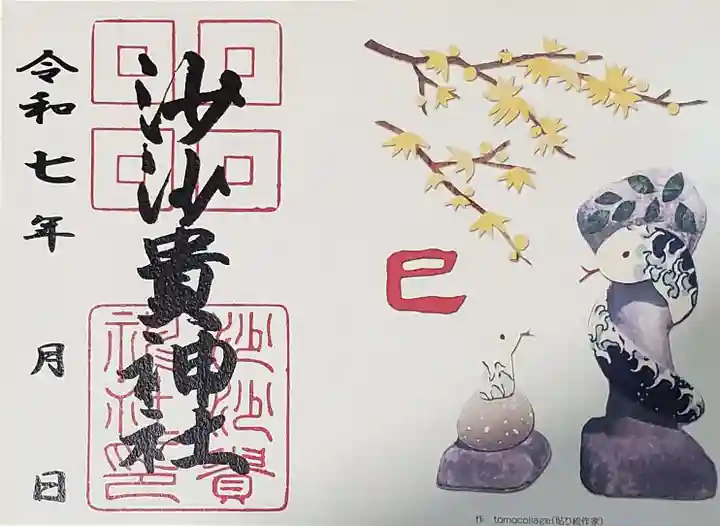 令和七年 月 日
沙沙貴神社
沙沙貴
神社印
巳
作 tomocollage(貼り絵作家)